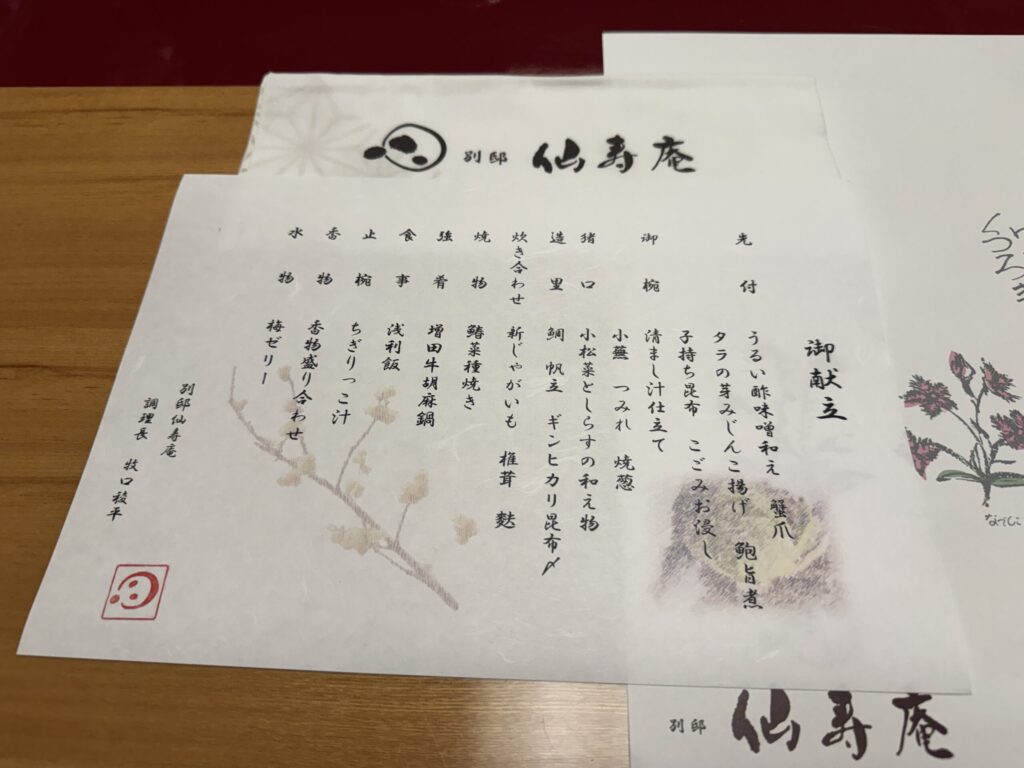 別邸 仙寿庵
御献立
先付
うるい酢味噌和え 蟹爪
タラの芽みじんこ揚げ 鮑旨煮
子持ち昆布 こごみお浸し
御椀
清まし汁仕立て
小蕪 つみれ 焼葱
猪口 小松菜としらすの和え物
造里 鯛 帆立 ギンヒカリ昆布〆
炊き合わせ 新じゃがいも 椎茸 麩
焼物 鰆菜種焼き
強肴 増田牛胡麻鍋
食事 浅利飯
止椀 ちぎりっこ汁
香物 香物盛り合わせ
水物 梅ゼリー
別邸仙寿庵
調理長 牧口稜平
なでしこ
別邸 仙寿庵